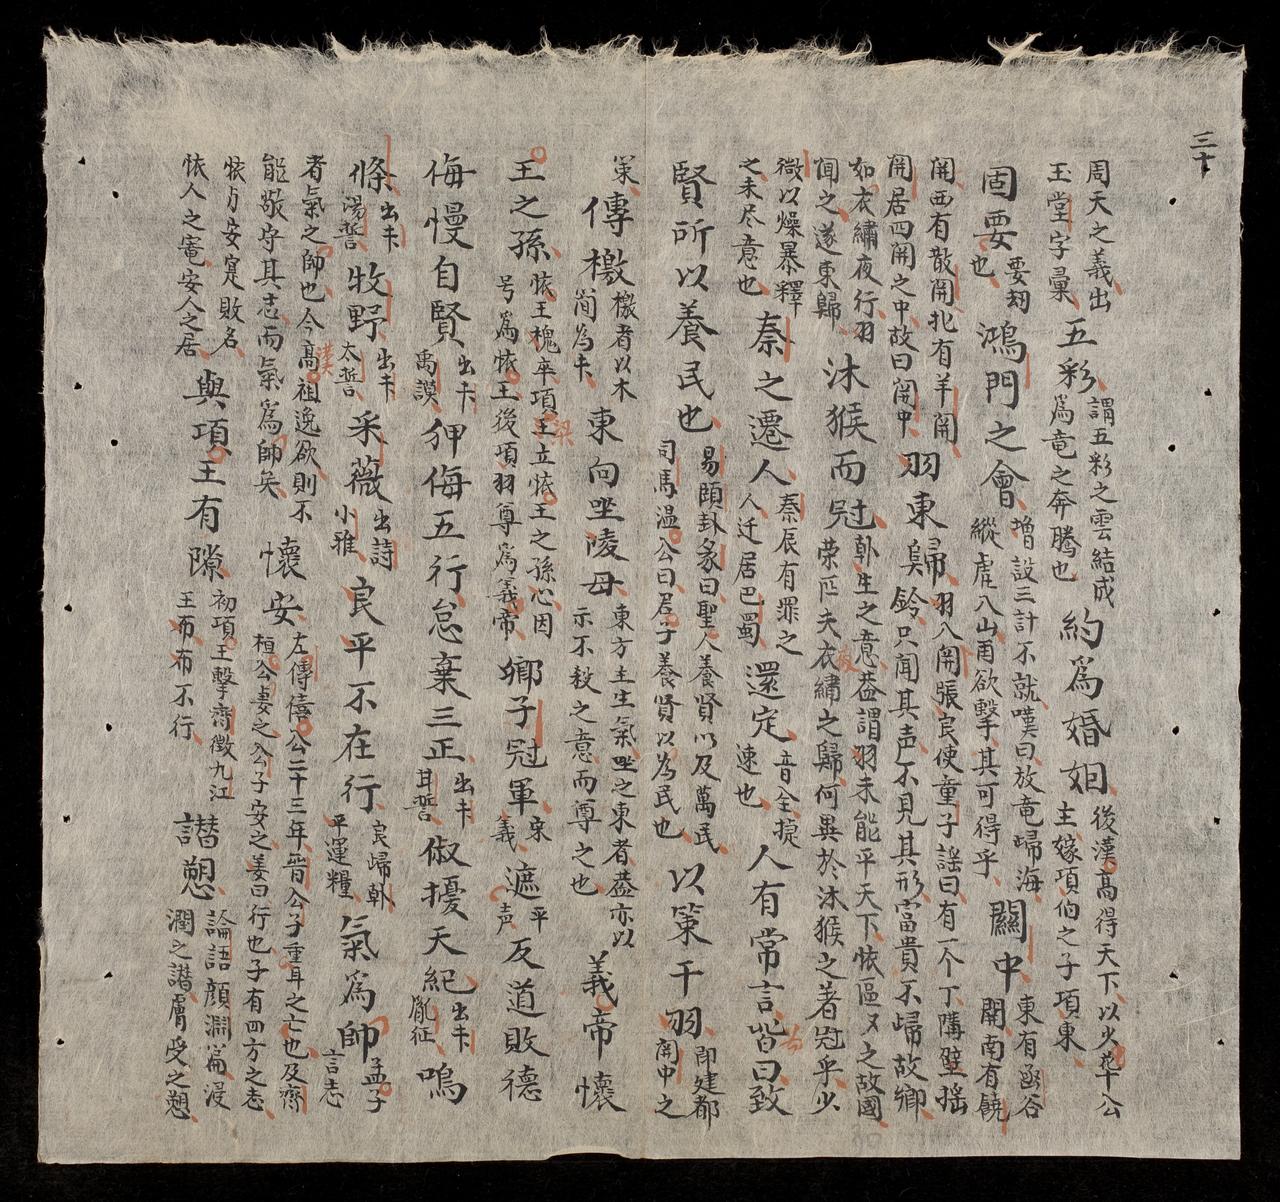 三十
周天之義出
玉堂字彙
五彩
謂五彩之雲結成
為竜之奔騰也
約為婚姻
後漢髙得天下以火花十公
主嫁項伯之子項東
固要
要劫
也
鴻門之會
增設三計不就嘆曰放竜歸海
縱虎八山甬欲擊其可得乎
關中
東有函谷
関南有饒
関西有散関北有羊関
関居四関之中故曰関中
羽東歸
羽入関張良使童子謡曰有一个丁隣壁揺
鈴只聞其声不見其形富貴不歸故鄉
如衣繡夜行羽
聞之遂東歸
沐猴而冠
韓生之意盖謂羽未能平天下恢區又之故國
荣匹夫衣繡之歸何異於沐猴之著冠乎少
微以燥暴釋
之未尽意也
秦之遷人
秦辰有罪之
人迁居巴蜀
還定
音全
速也
人有常言皆曰致
賢所以養民也
易頤卦彖曰聖人養賢以及萬民
司馬温公曰君子養賢以為民也
以策干羽
即建都
関中之
策
傳檄
檄者以木
簡為卡
東向坐陵母
東方主生氣坐之東者盖亦以
示不殺之意而尊之也
義帝懷
王之孫
恢王槐卒項梁立恢王之孫心因
号為恢王後項羽尊為義帝
鄉子冠軍
宋
義
遮
平
声
反道敗德
侮慢自賢
出卡
禹謨
狎侮五行怠棄三正
出卡
甘誓
俶擾天紀
出卡
胤征
嗚
條
出卡
湯誓
牧野
出卡
太誓
采薇
出詩
小雅
良平不在行
良歸韓
平運糧
氣為帥
孟子
言志
者氣之帥也今漢高祖逸欲則不
能敬守其志而氣為帥矣
懷安
左傳僖公二十三年晉公子重耳之亡也及齊
桓公妻之公子安之姜曰行也子有四方之志
恢与安寔敗名
恢人之寁安人之居
與項王有隙
初項王擊齊徴九江
王布布不行
譖愬
論語顔淵篇浸
潤之譖膚受之愬